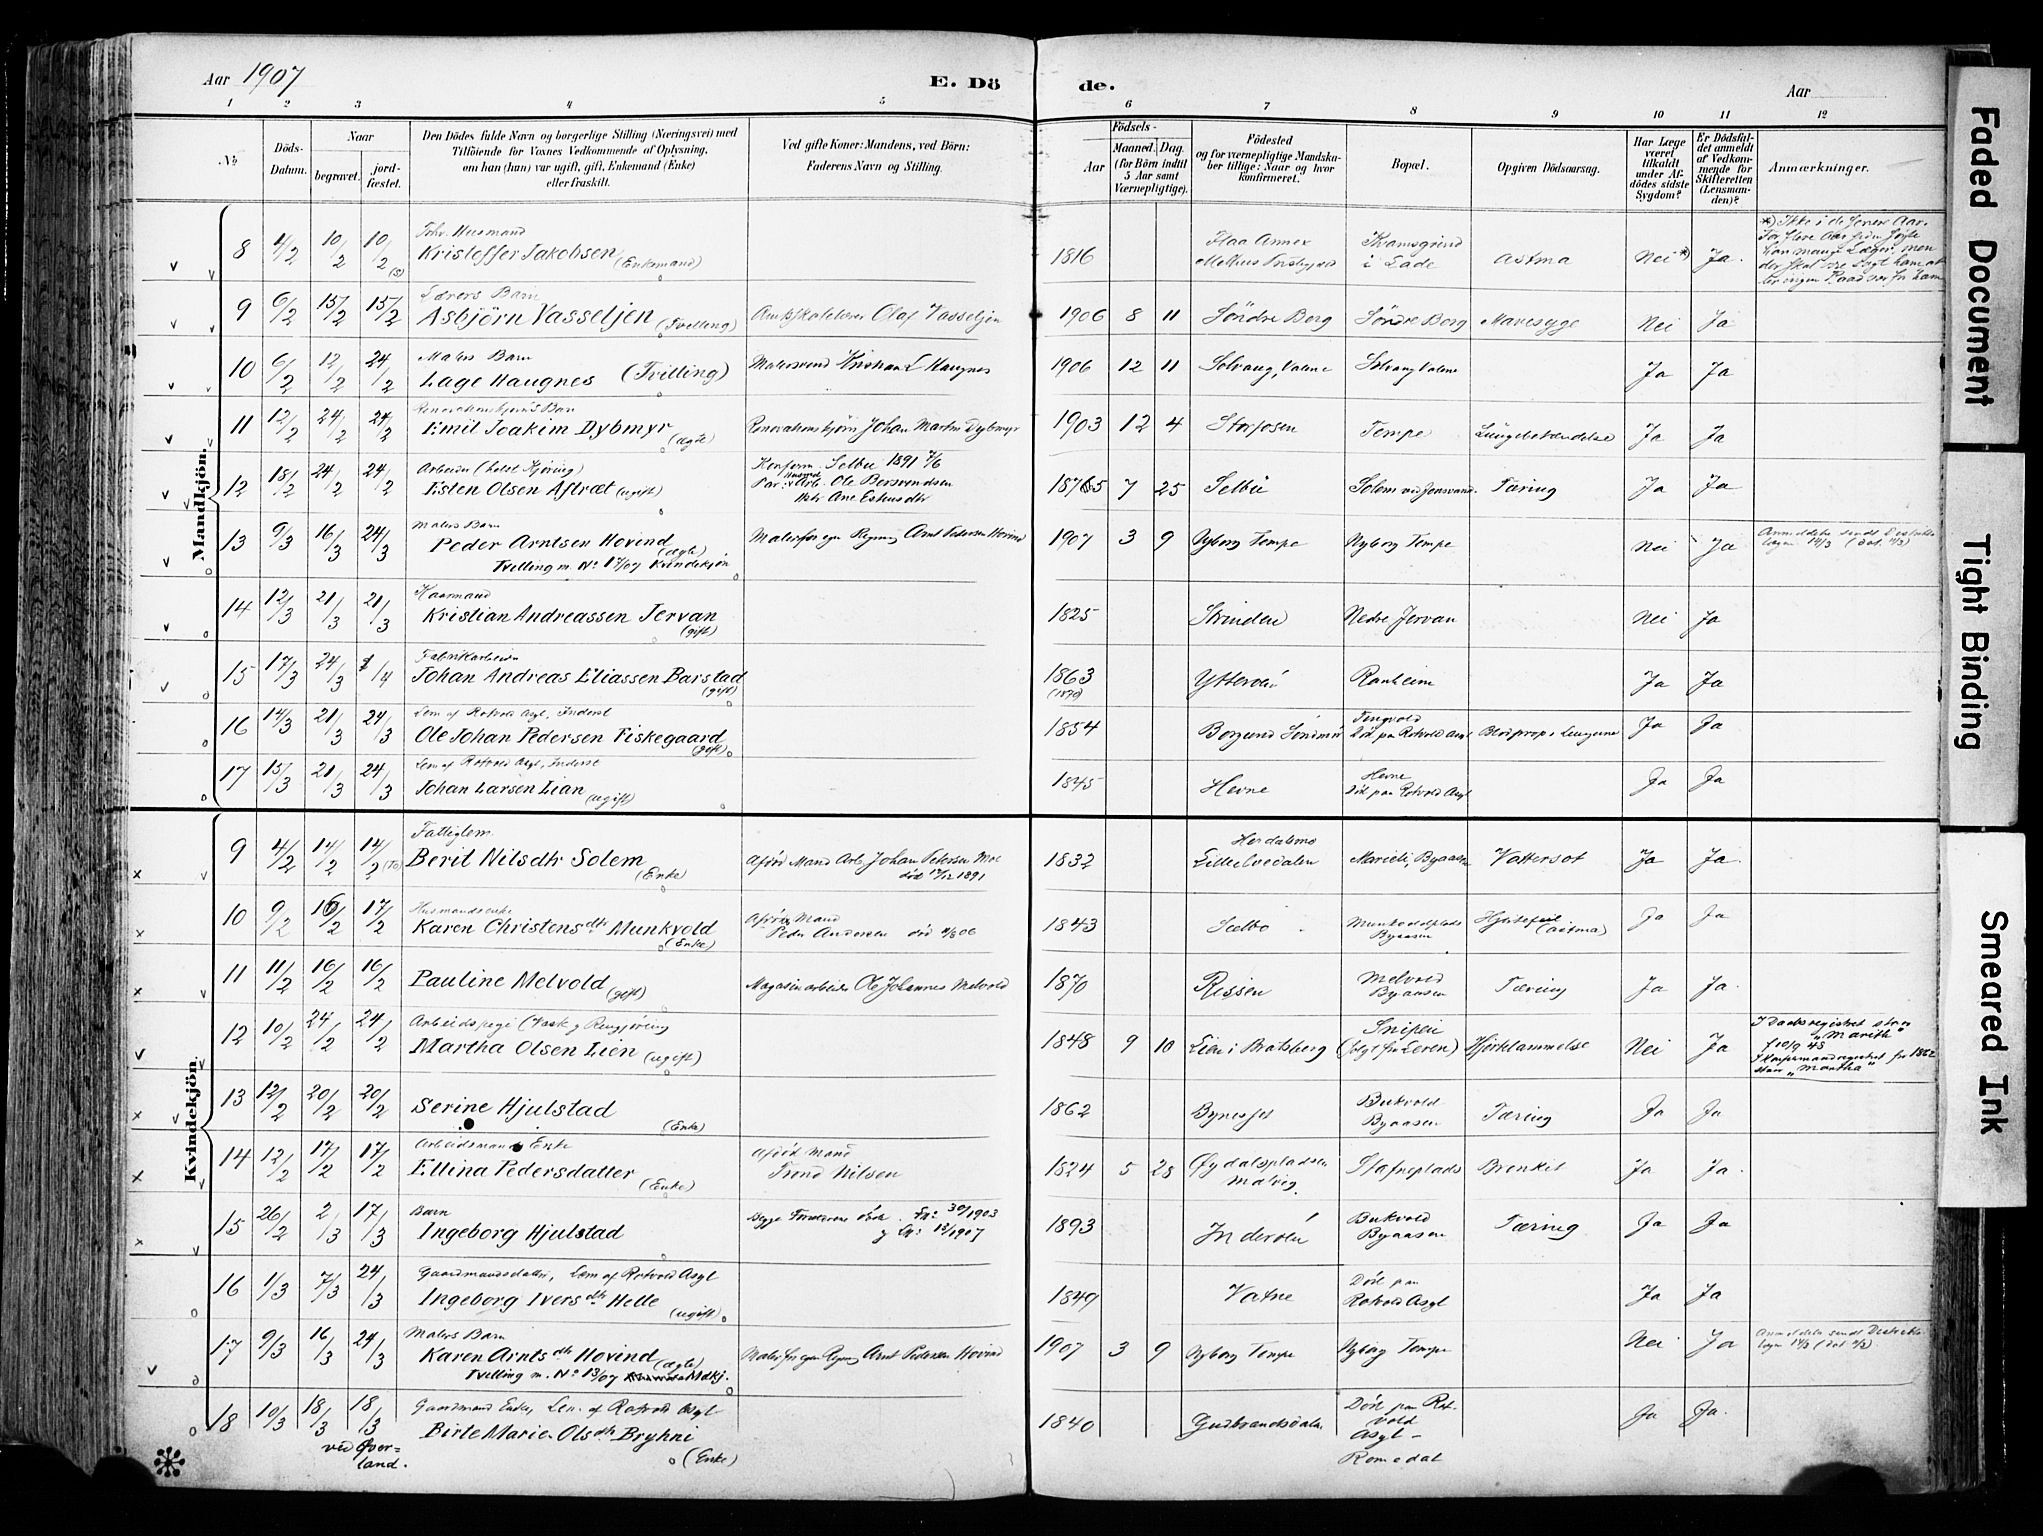 Aar 1907
E. Dö
de.
Aar
1 2 3 4 5 6 7 8 9 10 11 12
№
Döds-
Datum.
Naar
begravet.
jord-
fæstet.
Den Dödes fulde Navn og borgerlige Stilling (Næringsvei) med
Tilföiende for Voxnes Vedkommende af Oplysning,
om han (hun) var ugift, gift, Enkemand (Enke)
eller fraskilt.
Ved gifte Koner: Mandens, ved Börn:
Faderens Navn og Stilling.
Födsels-
Aar
Maaned. Dag.
(for Börn indtil
5 Aar samt
Værnepligtige).
Födested
og for værnepligtige Mandska-
ber tillige: Naar og hvor
konfirmeret.
Bopæl.
Opgiven Dödsaarsag.
Har Læge
været
tilkaldt
under Af-
dödes sidste
Sygdom?
Er Dödsfal-
det anmeldt
af Vedkom-
mende for
Skifteretten
(Lensman-
den)?
Anmærkninger.
Mandkjön.
8 4/2 10/2 10/2 (S)
Husmand
Kristoffer Jakobsen (Enkemand)
1816 Flaa Annex Melhus
i Lade
Astma Nei *) Ja.
*) Ikke i de senere Aar.
9 6/2 15/2 15/2
Lærers Barn
Asbjörn Vasseljen (Tvilling)
Amtsskolelærer Olaf Vasseljen
1906 8 11 Søndre Borg Søndre Borg Mavesyge Nei Ja
10 6/2 12/2 24/2
Malers Barn
Lage Haugnes (Tvilling)
Malersvend Kristian L Haugnes
1906 12 11 Solvang, Valene Solvang Valene Ja Ja
11 12/2 24/2 24/2
Renovationskjørers Barn
Emil Joakim Dybmyr (ægte)
Johan Martin Dybmyr
1903 12 4 Storfosen Tempe Lungebetændelse Ja Ja
12 18/2 24/2 24/2
Arbeider (helst Kjøring)
Esten Olsen Aftræt (ugift)
Konfirm. Selbu 1891 7/6
Ole Bersvendsen
1875 7 25 Selbu Solem ved Jonsvand. Tæring Ja Ja
13 9/3 16/3 24/3
Malers Barn
Peder Arntsen Hovind (ægte)
Tvilling m. No 17/07 Kvindekjön
Maler for egen Regning Arnt Pedersen Hovind
1907 3 9 Nyborg Tempe Nyborg Tempe Nei Ja
Anmeldelse sendt Distrikts
lægen 14/3
14 12/3 21/3 21/3
Kaarmand
Kristian Andreassen Jervan (gift)
1825 Strinden Nedre Jervan Nei Ja
15 17/3 24/3 1/4
Fabrikarbeider
Johan Andreas Eliassen Barstad (gift)
1863 Ytterøen Ranheim Ja Ja
16 14/3 21/3 24/3
Lem af Rotvold Asyl, Inderst
Ole Johan Pedersen Fiskegaard (gift)
1854 Borgund Søndmør
Tingvold
Död paa Rotvold Asyl
Blodprop i Lungerne Ja Ja
17 15/3 21/3 24/3
Lem af Rotvold Asyl, Inderst
Johan Larsen Lian (ugift)
1845 Hevne
Hevne
död paa Rotvold Asyl
Ja Ja
Kvindekjön.
9 4/2 14/2 14/2 (To)
Fattiglem
Berit Nilsdtr Solem (Enke)
Afdød Mand Arb. Johan Petersen Moe
død 17/12 1891
1832 Lille Lvedalen
Marieli, Byaasen Vattersot Ja Ja.
10 9/2 16/2 17/2
Husmandsenke
Karen Christensdtr Munkvold (Enke)
Afdød Mand
Peder Andersen
1843 Selbo
Munkvoldplads
Byaasen
Hjertefeil
(astma)
Ja Ja
11 11/2 16/2 16/2
Pauline Melvold (gift)
Magasinarbeider Ole Johannes Melvold
1870 Rissen
Melvold
Byaasen
Tæring Ja Ja.
12 10/2 24/2 24/2
Arbeidspige (Vask og Rengjøring
Martha Olsen Lien (ugift)
1848 9 10 Lien i Bratsberg
(solgt fra Leren)
Hjerklammelse Nei Ja
I Daabsregistret staar
"Marith"
f 10/9 48
I Konfirmandregistret for 1862
staar "Martha"
13 12/2 20/2 20/2
Serine Hjulstad (Enke)
1862 Bynesset
Bukvold
Byaasen
Tæring Ja Ja
14 12/2 17/2 17/2
Arbeidsmands Enke
Ellina Pedersdatter (Enke)
Afdød Mand
Trond Nilsen
1824 5 28 Øydalspladsen
Malvig.
Stavneplads Ja Ja.
15 26/2 2/3 17/3
Barn
Ingeborg Hjulstad
Begge Forældrene døde.
1893 Inderøen
Bukvold
Byaasen
Tæring Ja Ja
16 1/3 7/3 24/3
Gaardmandsdatter, Lem af Rotvold Asyl
Ingeborg Iversdtr Helle (ugift)
1849 Vatne
Död paa
Rotvold Asyl
Ja Ja
17 9/3 16/3 24/3
Malers Barn
Karen Arntsdtr Hovind (ægte)
Tvilling m. No 13/07 Mdkj.
Maler for egen Regning Arnt Pedersen Hovind
1907 3 9 Nyborg Tempe Nyborg Tempe Nei Ja
Anmeldelse sendt Distrikts
lægen 14/3
18 10/3 18/3 18/3
ved Över-
land.
Gaardmand Enke, Lem af Rotvold Asyl
Birte Marie Olsdtr Bryhni (Enke)
1840 Gudbrandsdalen
Död paa Rot-
vold
Asyl -
Romedal
Ja Ja.
Faded Document
Tight Binding
Smeared Ink